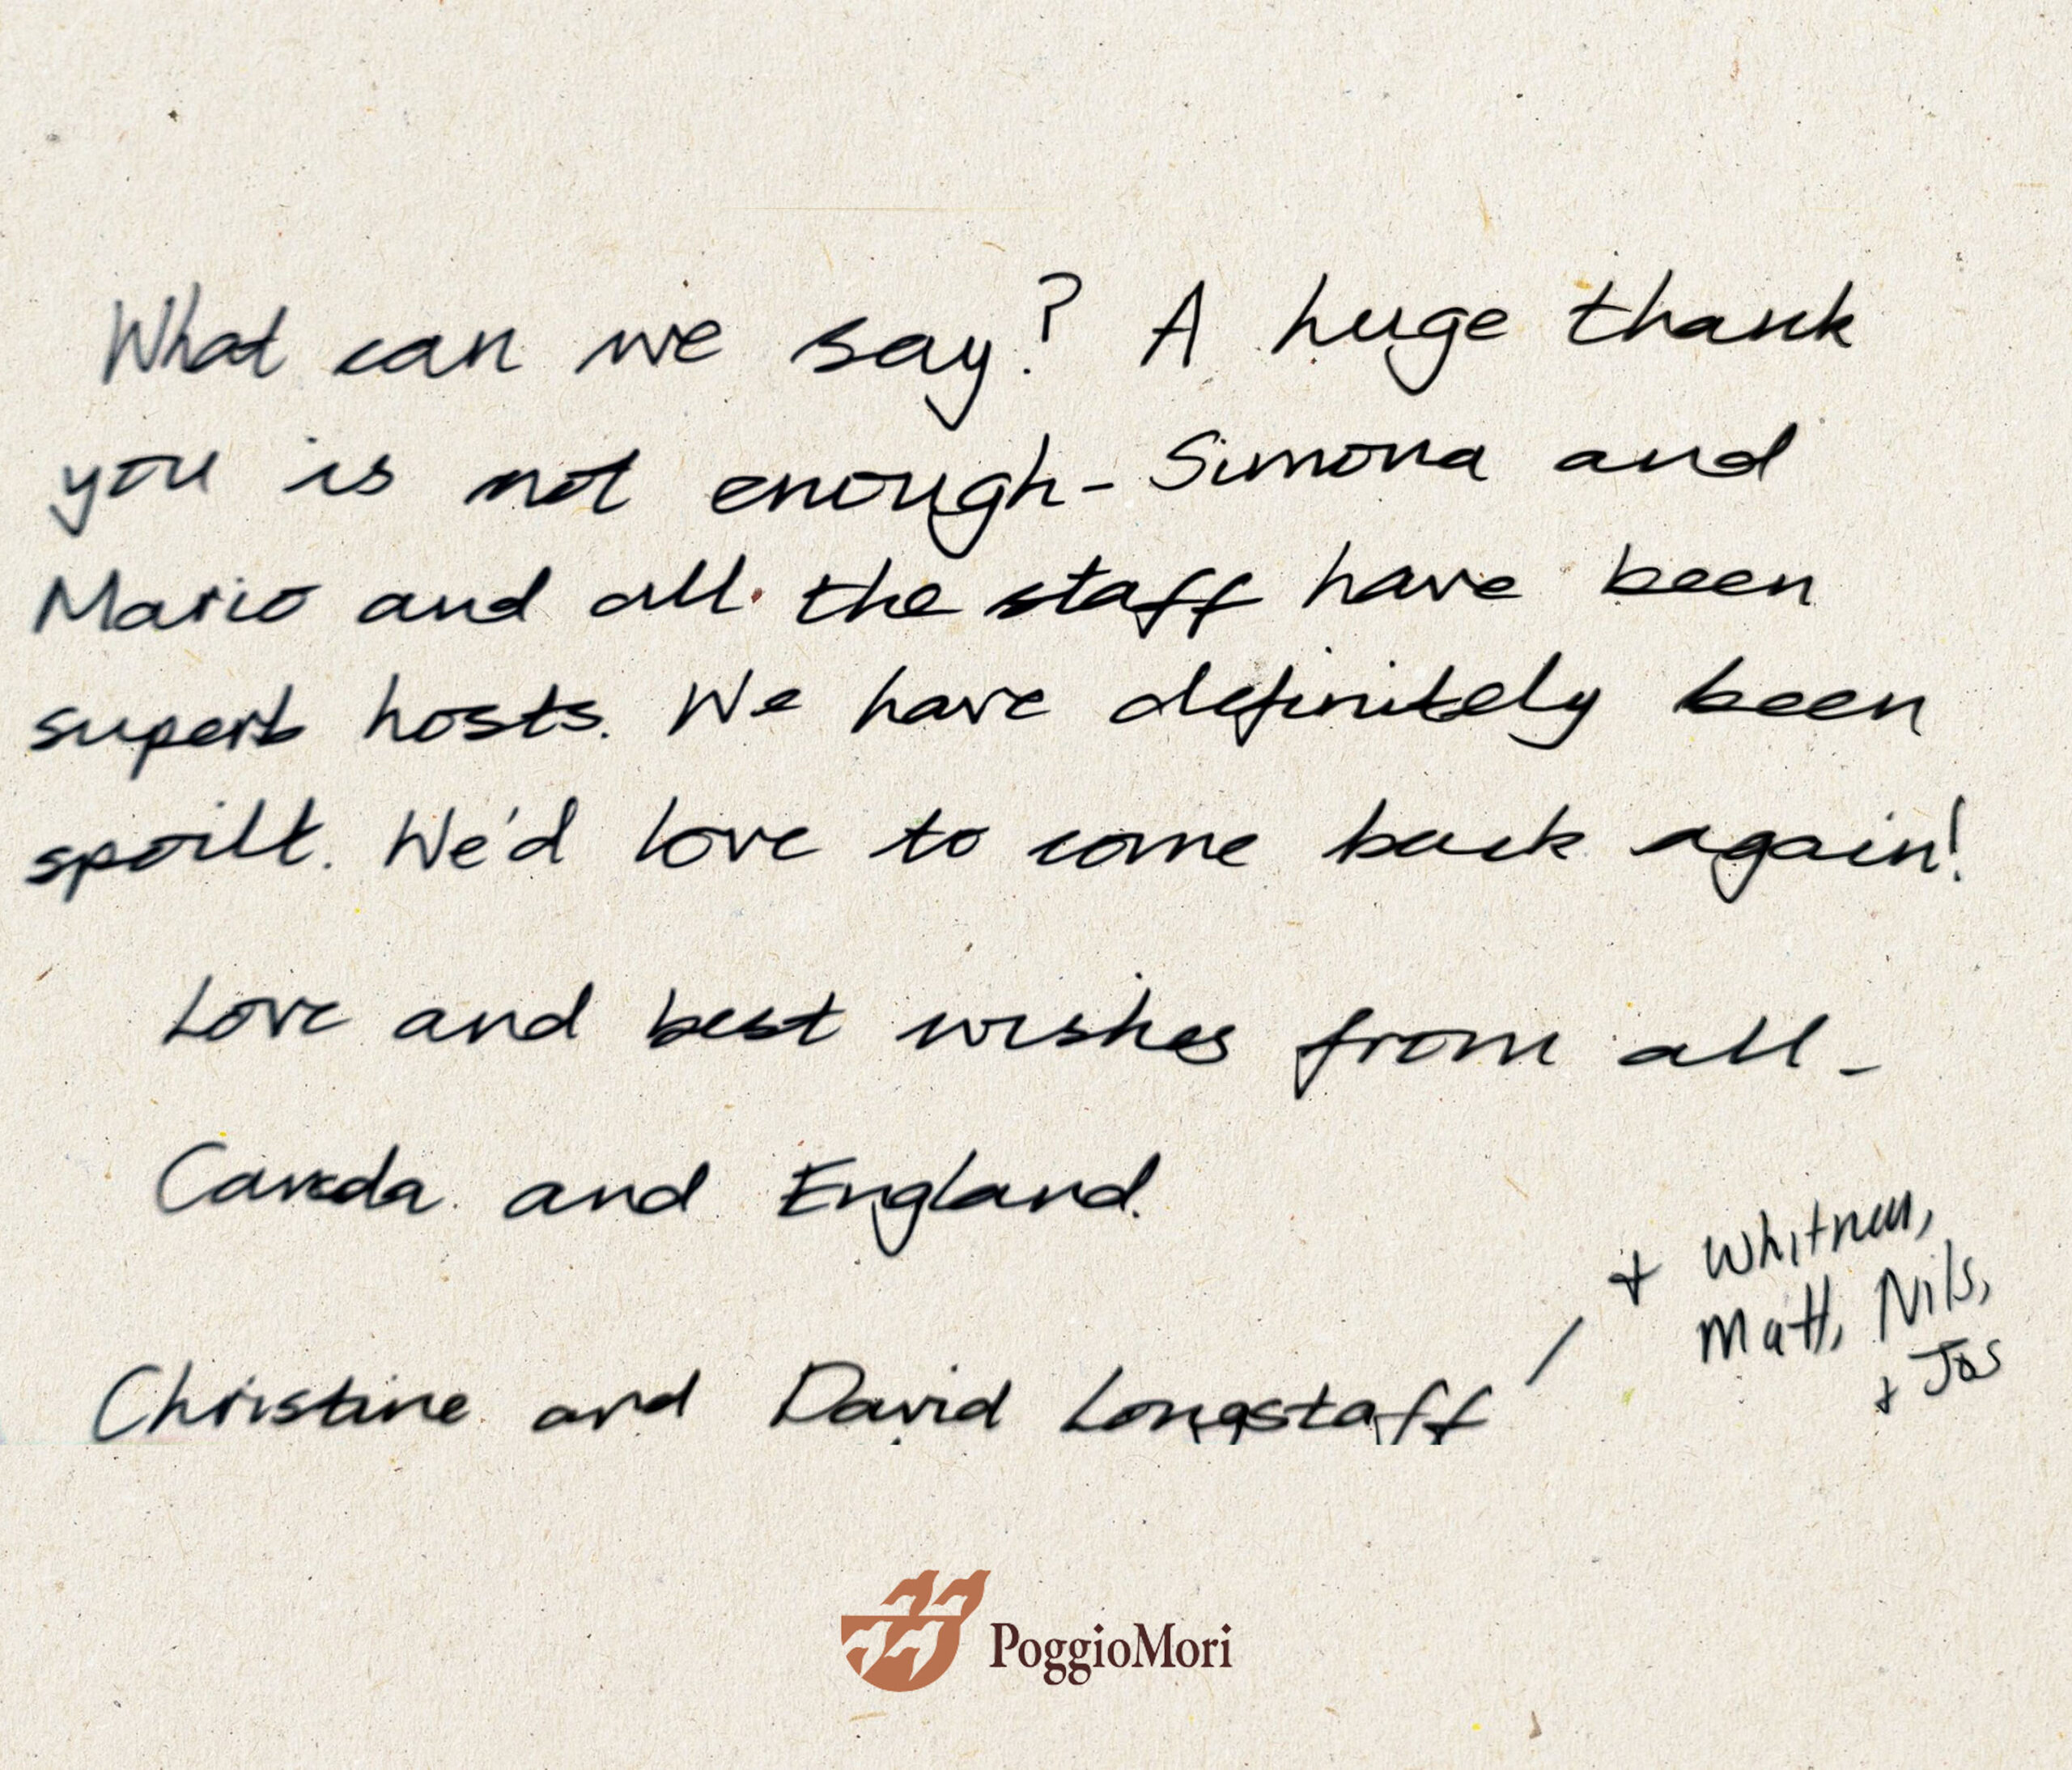 What can we say? A huge thank
you is not enough - Simona and
Mario and all the staff have been
superb hosts. We have definitely been
spoilt. We'd love to come back again!
Love and best wishes from all -
Canada and England.
Christine and David Longstaff /
+ Whitney,
Matt, Nils,
+ Jos
PoggioMori